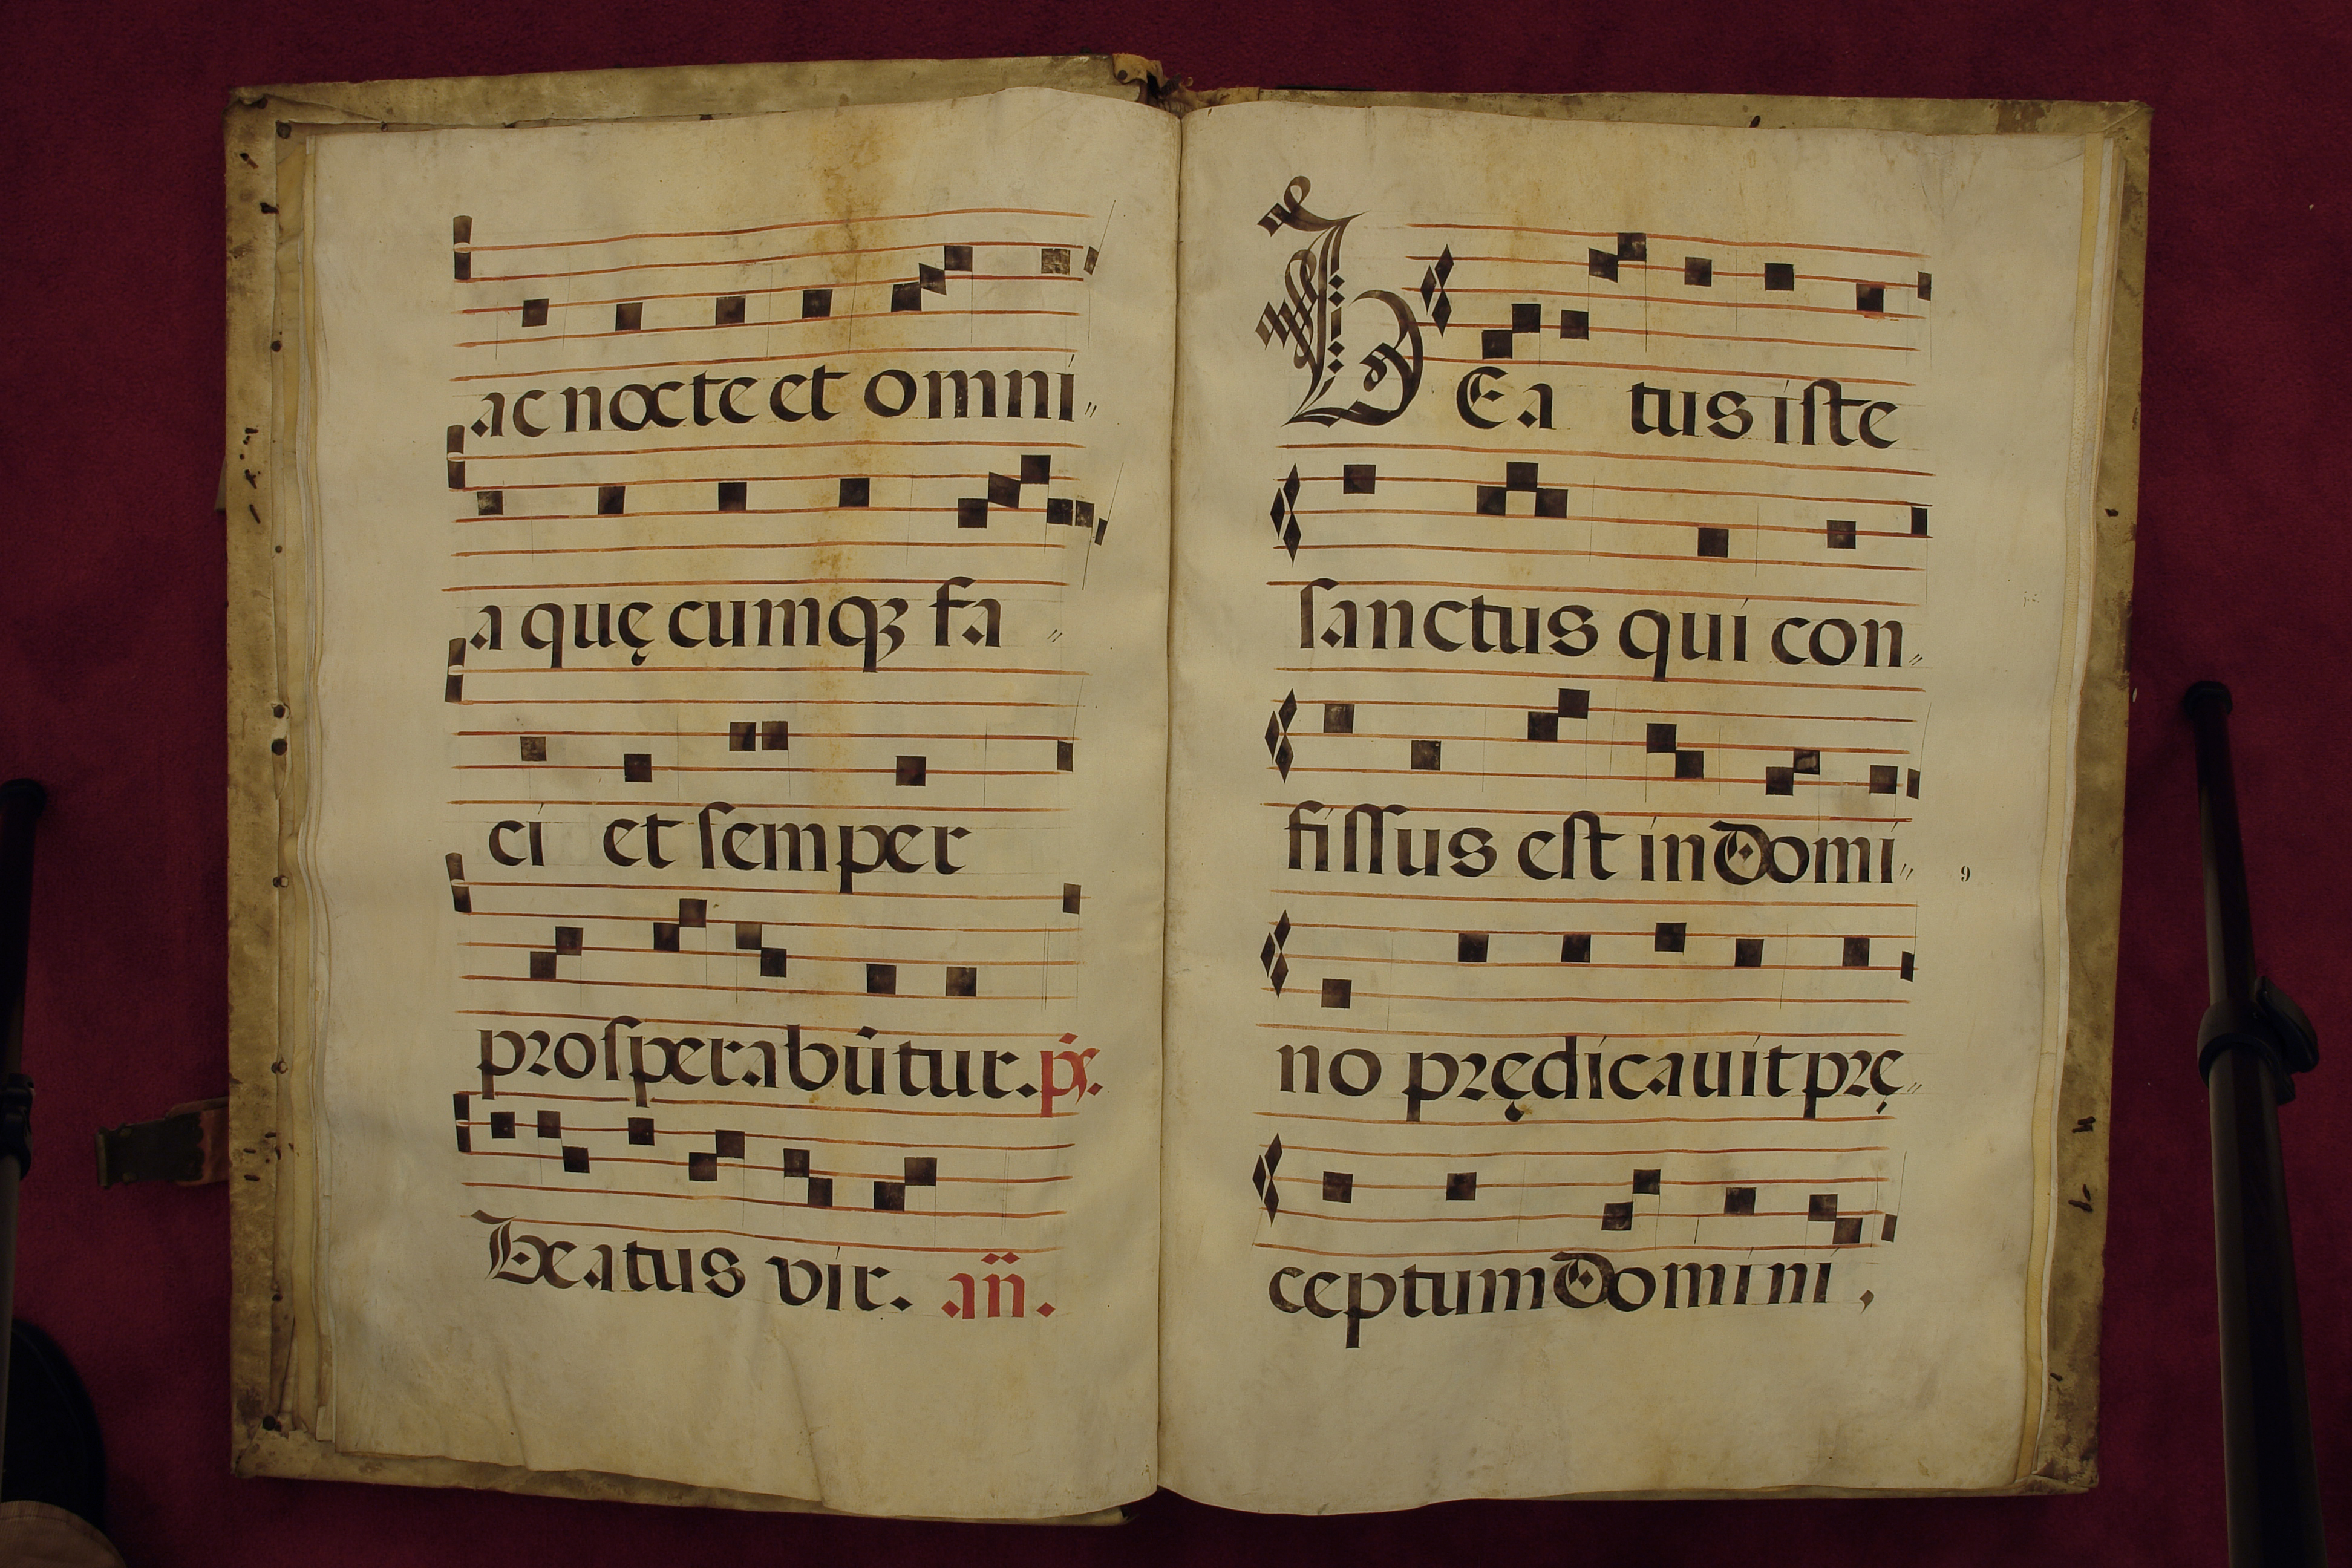 ac nocte et omni〃
a quę cumqꝫ fa〃
ci et ſemper
proſperabūtur. ps.
Beatus vir. añ.
BEatus iſte
ſanctus qui con〃
fiſſus eſt in Domi〃
9
no prędicauit prę〃
ceptum Domini,